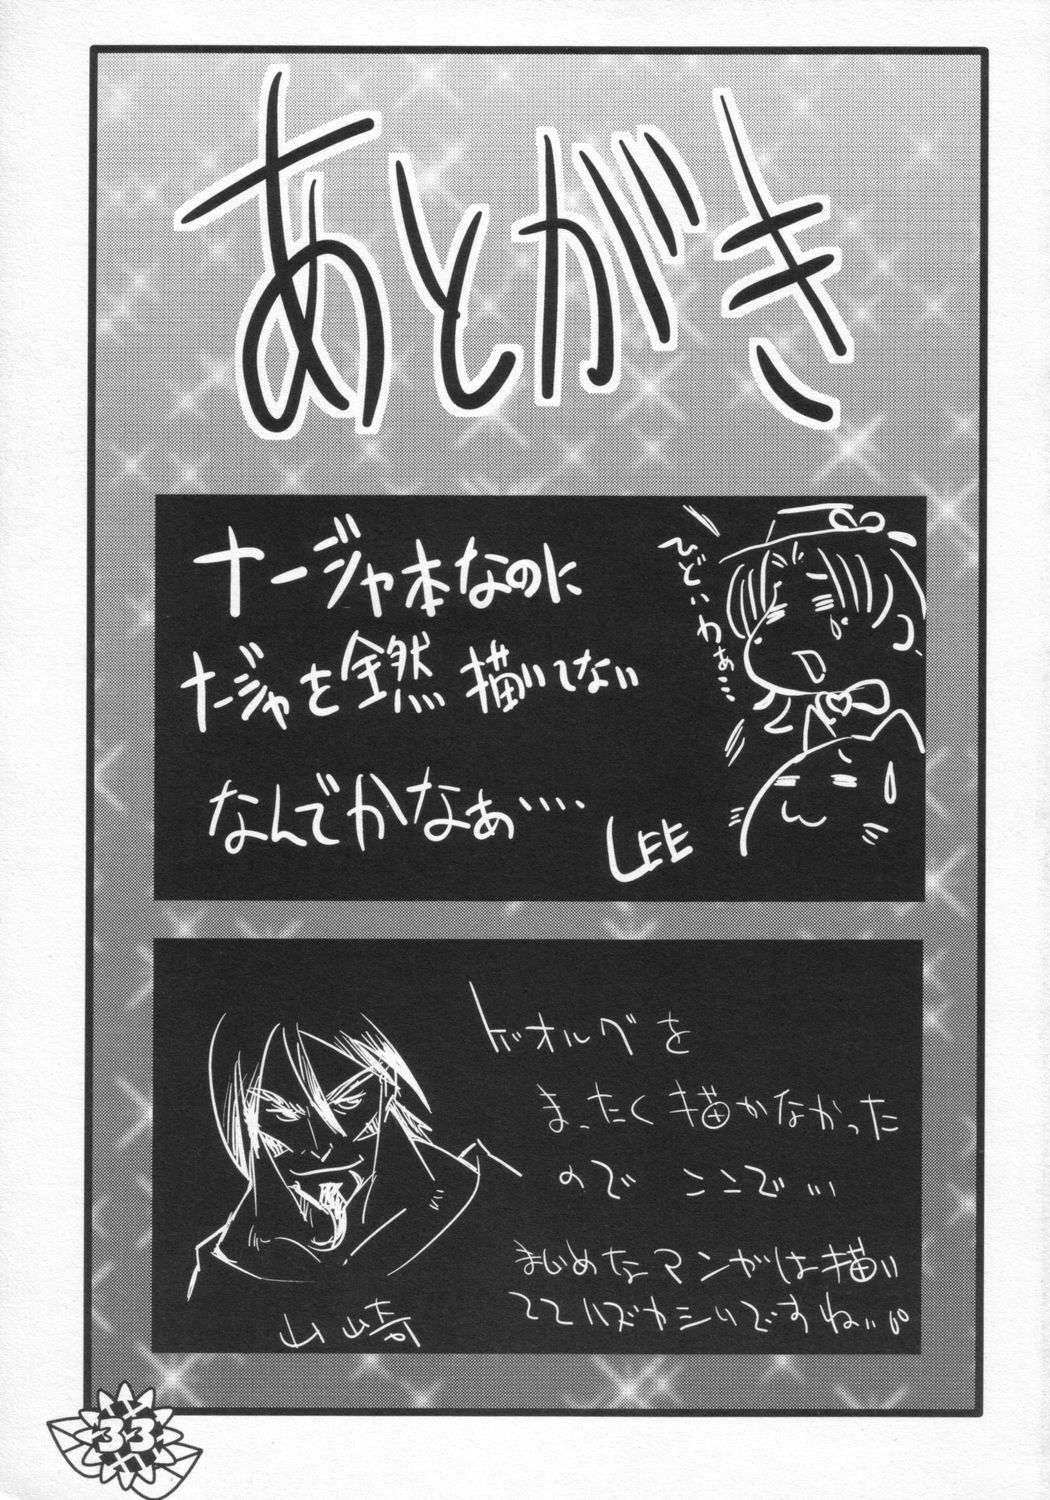 あとがき
ナージャ本なのに
ナージャを全然描いてない
なんでかなぁ‥‥
LEE
ひどいわぁ…
ゲオルグを
まったく描かなかった
ので ここで…
まじめなマンガは描い
ててハズカシいですねぃ。
山崎
33